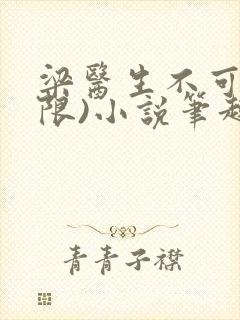 梁醫生不可
限)小說筆趣
青青子襟